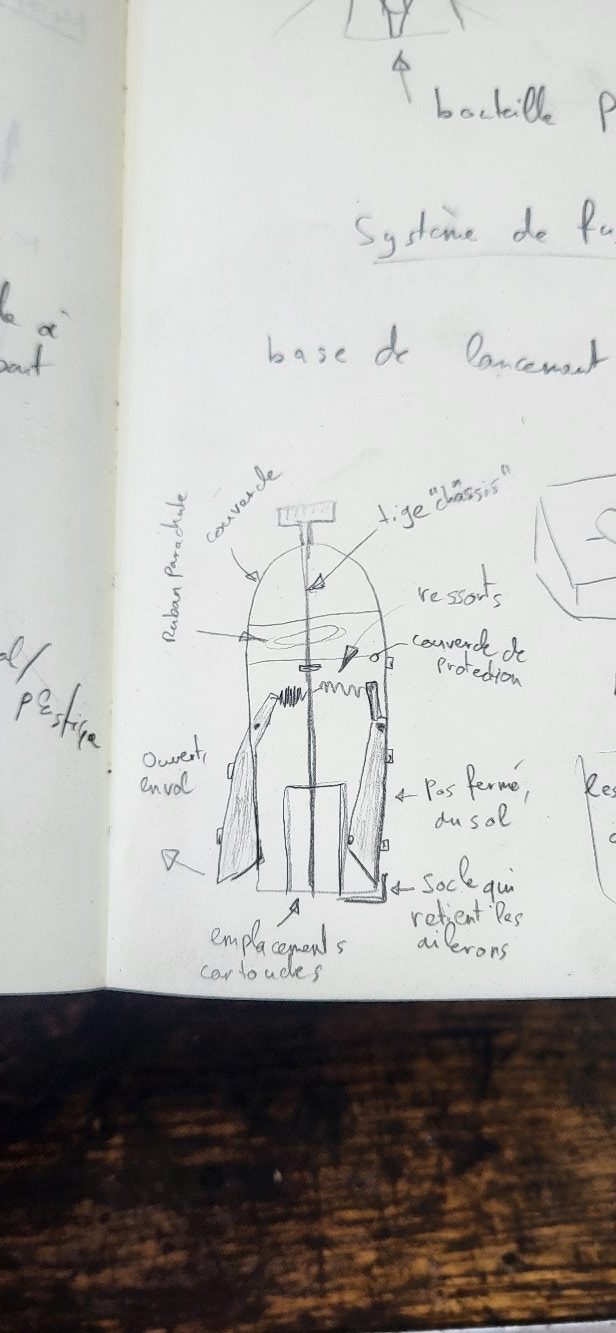 bouteille
Système de
base de lancement
couvercle
tige "châssis"
Ruban Parachute
ressorts
couvercle de
protection
Ouvert,
envol
Pos fermé,
du sol
Socle qui
retient les
ailerons
emplacements
cartouches